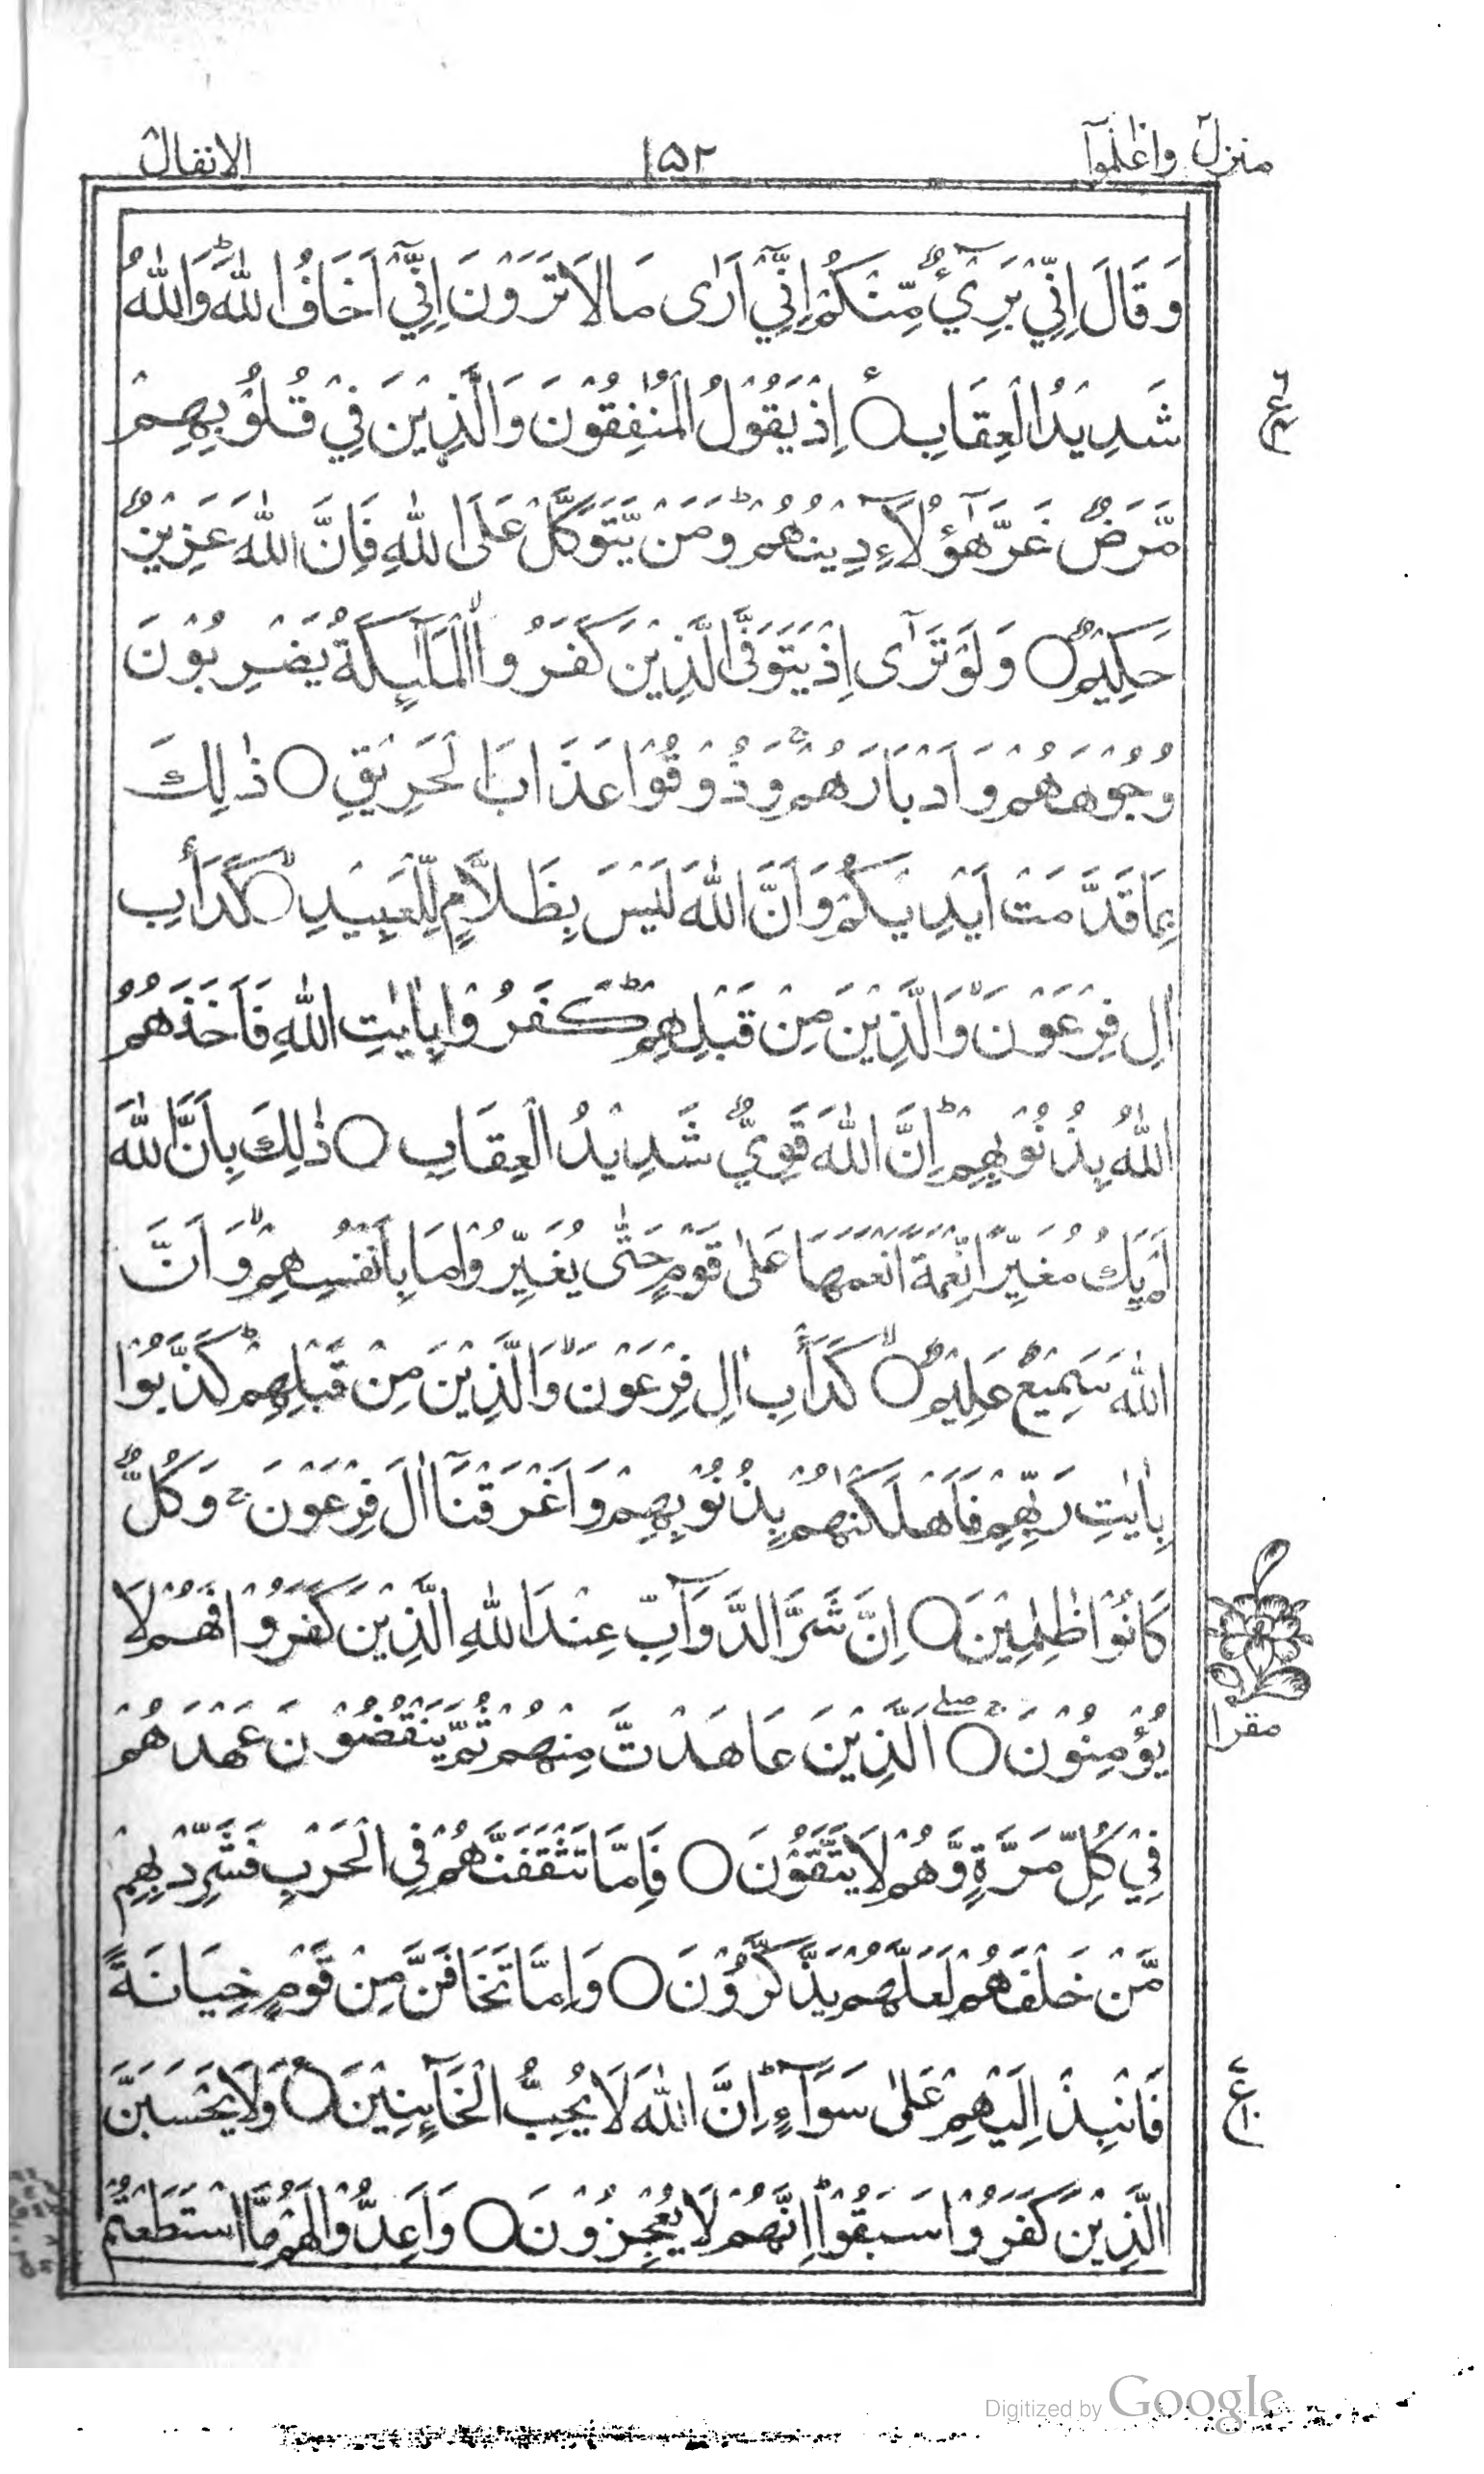 منزل٢ واعلموآ
١٥٢
الانفال
وَقَالَ اِنِّیْ بَرِیْٓءٌ مِّنْكُمْ اِنِّیْٓ اَرٰی مَا لَا تَرَوْنَ اِنِّیْٓ اَخَافُ اللّٰهَ ؕ وَاللّٰهُ
شَدِیْدُ الْعِقَابِ ○ اِذْ یَقُوْلُ الْمُنٰفِقُوْنَ وَالَّذِیْنَ فِیْ قُلُوْبِهِمْ
مَّرَضٌ غَرَّ هٰٓؤُلَآءِ دِیْنُهُمْ ؕ وَمَنْ یَّتَوَكَّلْ عَلَی اللّٰهِ فَاِنَّ اللّٰهَ عَزِیْزٌ
حَكِیْمٌ ○ وَلَوْ تَرٰٓی اِذْ یَتَوَفَّی الَّذِیْنَ كَفَرُوا ۙ الْمَلٰٓئِكَةُ یَضْرِبُوْنَ
وُجُوْهَهُمْ وَاَدْبَارَهُمْ ۚ وَذُوْقُوْا عَذَابَ الْحَرِیْقِ ○ ذٰلِكَ
بِمَا قَدَّمَتْ اَیْدِیْكُمْ وَاَنَّ اللّٰهَ لَیْسَ بِظَلَّامٍ لِّلْعَبِیْدِ ○ۙ كَدَاْبِ
اٰلِ فِرْعَوْنَ ۙ وَالَّذِیْنَ مِنْ قَبْلِهِمْ ؕ كَفَرُوْا بِاٰیٰتِ اللّٰهِ فَاَخَذَهُمُ
اللّٰهُ بِذُنُوْبِهِمْ ؕ اِنَّ اللّٰهَ قَوِیٌّ شَدِیْدُ الْعِقَابِ ○ ذٰلِكَ بِاَنَّ اللّٰهَ
لَمْ یَكُ مُغَیِّرًا نِّعْمَةً اَنْعَمَهَا عَلٰی قَوْمٍ حَتّٰی یُغَیِّرُوْا مَا بِاَنْفُسِهِمْ ۙ وَاَنَّ
اللّٰهَ سَمِیْعٌ عَلِیْمٌ ○ۙ كَدَاْبِ اٰلِ فِرْعَوْنَ ۙ وَالَّذِیْنَ مِنْ قَبْلِهِمْ ؕ كَذَّبُوْا
بِاٰیٰتِ رَبِّهِمْ فَاَهْلَكْنٰهُمْ بِذُنُوْبِهِمْ وَاَغْرَقْنَآ اٰلَ فِرْعَوْنَ ۚ وَكُلٌّ
كَانُوْا ظٰلِمِیْنَ ○ اِنَّ شَرَّ الدَّوَآبِّ عِنْدَ اللّٰهِ الَّذِیْنَ كَفَرُوْا فَهُمْ لَا
یُؤْمِنُوْنَ ○ۚۖ اَلَّذِیْنَ عَاهَدْتَّ مِنْهُمْ ثُمَّ یَنْقُضُوْنَ عَهْدَهُمْ
فِیْ كُلِّ مَرَّةٍ وَّهُمْ لَا یَتَّقُوْنَ ○ فَاِمَّا تَثْقَفَنَّهُمْ فِی الْحَرْبِ فَشَرِّدْ بِهِمْ
مَّنْ خَلْفَهُمْ لَعَلَّهُمْ یَذَّكَّرُوْنَ ○ وَاِمَّا تَخَافَنَّ مِنْ قَوْمٍ خِیَانَةً
فَانْۢبِذْ اِلَیْهِمْ عَلٰی سَوَآءٍ ؕ اِنَّ اللّٰهَ لَا یُحِبُّ الْخَآئِنِیْنَ ○ وَلَا یَحْسَبَنَّ
الَّذِیْنَ كَفَرُوْا سَبَقُوْا ؕ اِنَّهُمْ لَا یُعْجِزُوْنَ ○ وَاَعِدُّوْا لَهُمْ مَّا اسْتَطَعْتُمْ
ع
مقرا
ع
Digitized by Google